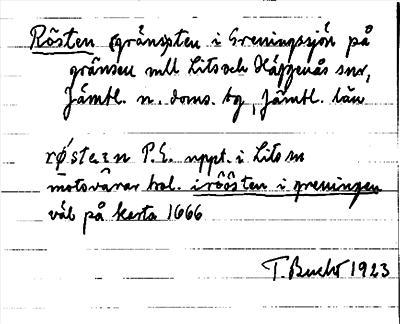 Rösten gränspten i Greningssjön på
gränsen mll Lits och Häggenås snr,
Jämtl. n. doms. tg, Jämtl. län
røstɛn P.E. uppt. i Lits sn
motsvarar hol. i röösten i greningen
väb på karta 1666
T. Bucht 1923